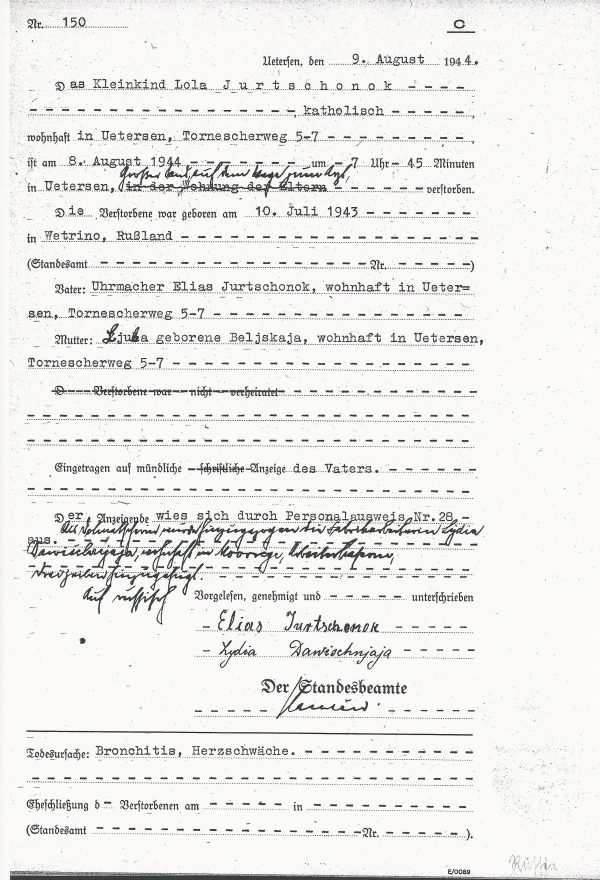 Nr. 150
C
Uetersen, den 9. August 1944.
Das Kleinkind Lola Jurtschonok - - - -
- - - - - - - - - - - - - - - - - , katholisch - - - - - ,
wohnhaft in Uetersen, Tornescherweg 5-7 - - - - - - - - - ,
ist am 8. August 1944 - - - - - - - um - 7 Uhr - 45 Minuten
Großer Sand, auf dem Wege zum Arzt,
in Uetersen, in der Wohnung der Eltern - - - - - - verstorben.
Die Verstorbene war geboren am 10. Juli 1943 - - - - - - -
in Wetrino, Rußland - - - - - - - - - - - - - - - - - -
(Standesamt - - - - - - - - - - - - - - - - - Nr. - - - - - )
Vater: Uhrmacher Elias Jurtschonok, wohnhaft in Ueter=
sen, Tornescherweg 5-7 - - - - - - - - - - - - - - - -
Mutter: Ljuba geborene Beljskaja, wohnhaft in Uetersen,
Tornescherweg 5-7 - - - - - - - - - - - - - - - - - - -
D - - - Verstorbene war - nicht - verheiratet - - - - - - - - - - - -
- - - - - - - - - - - - - - - - - - - - - - - - - - - -
- - - - - - - - - - - - - - - - - - - - - - - - - - - -
Eingetragen auf mündliche - schriftliche - Anzeige des Vaters. - - - - - -
- - - - - - - - - - - - - - - - - - - - - - - - - - - -
Der Anzeigende wies sich durch Personalausweis Nr. 28 -
aus.
Als Dolmetscherin wurde hinzugezogen die Fabrikarbeiterin Lydia
Dawischnjaja, wohnhaft in
hinzugefügt.
Auf russisch
Vorgelesen, genehmigt und - - - - - unterschrieben
- Elias Jurtschonok - - - - -
- Lydia Dawischnjaja - - - - -
Der Standesbeamte
Todesursache: Bronchitis, Herzschwäche. - - - - - - - - - - -
- - - - - - - - - - - - - - - - - - - - - - - - - - - -
Eheschließung d - Verstorbenen am - - - - - in - - - - - - - - - -
(Standesamt - - - - - - - - - - - - - - - - - Nr. - - - - - ).
E/0089